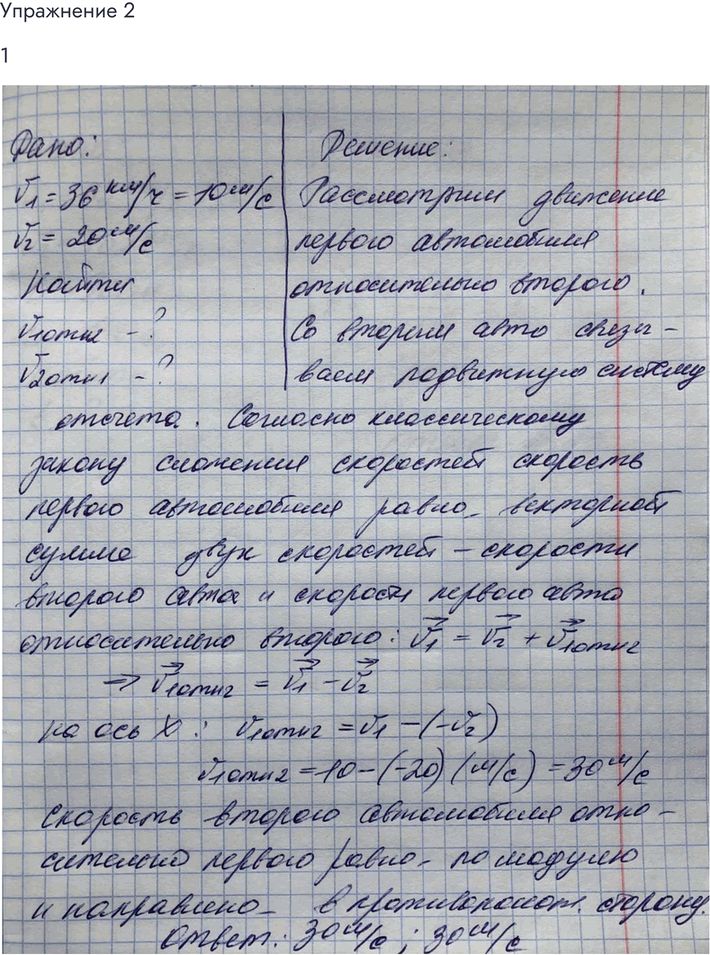 Упражнение 2
1
Дано:
V1 = 36 км/ч = 10 м/с
V2 = 20 м/с
Найти
V1отн2 - ?
V2отн1 - ?
Решение:
Рассмотрим движение
первого автомобиля
относительно второго.
Со вторым авто связы-
ваем подвижную систему
отсчета. Согласно классическому
закону сложения скоростей скорость
первого автомобиля равна векторной
сумме двух скоростей - скорости
второго авто и скорости первого авто
относительно второго: V⃗1 = V⃗2 + V⃗1отн2
⇒ V⃗1отн2 = V⃗1 - V⃗2
на ось X: V1отн2 = V1 - (-V2)
V1отн2 = 10 - (-20) (м/с) = 30 м/с
Скорость второго автомобиля отно-
сительно первого равна по модулю
и направлена в противополож. сторону.
Ответ: 30 м/с ; 30 м/с